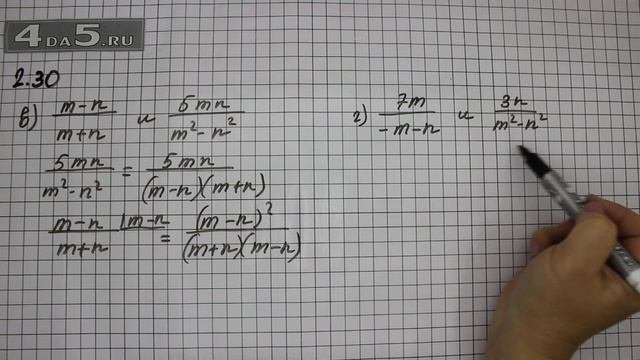 4DA5.RU
2.30
в) (m-n)/(m+n) и 5mn/(m²-n²)
5mn/(m²-n²) = 5mn/((m-n)(m+n))
(m-n)/(m+n) |m-n = (m-n)²/((m+n)(m-n))
г) 7m/(-m-n) и 3n/(m²-n²)